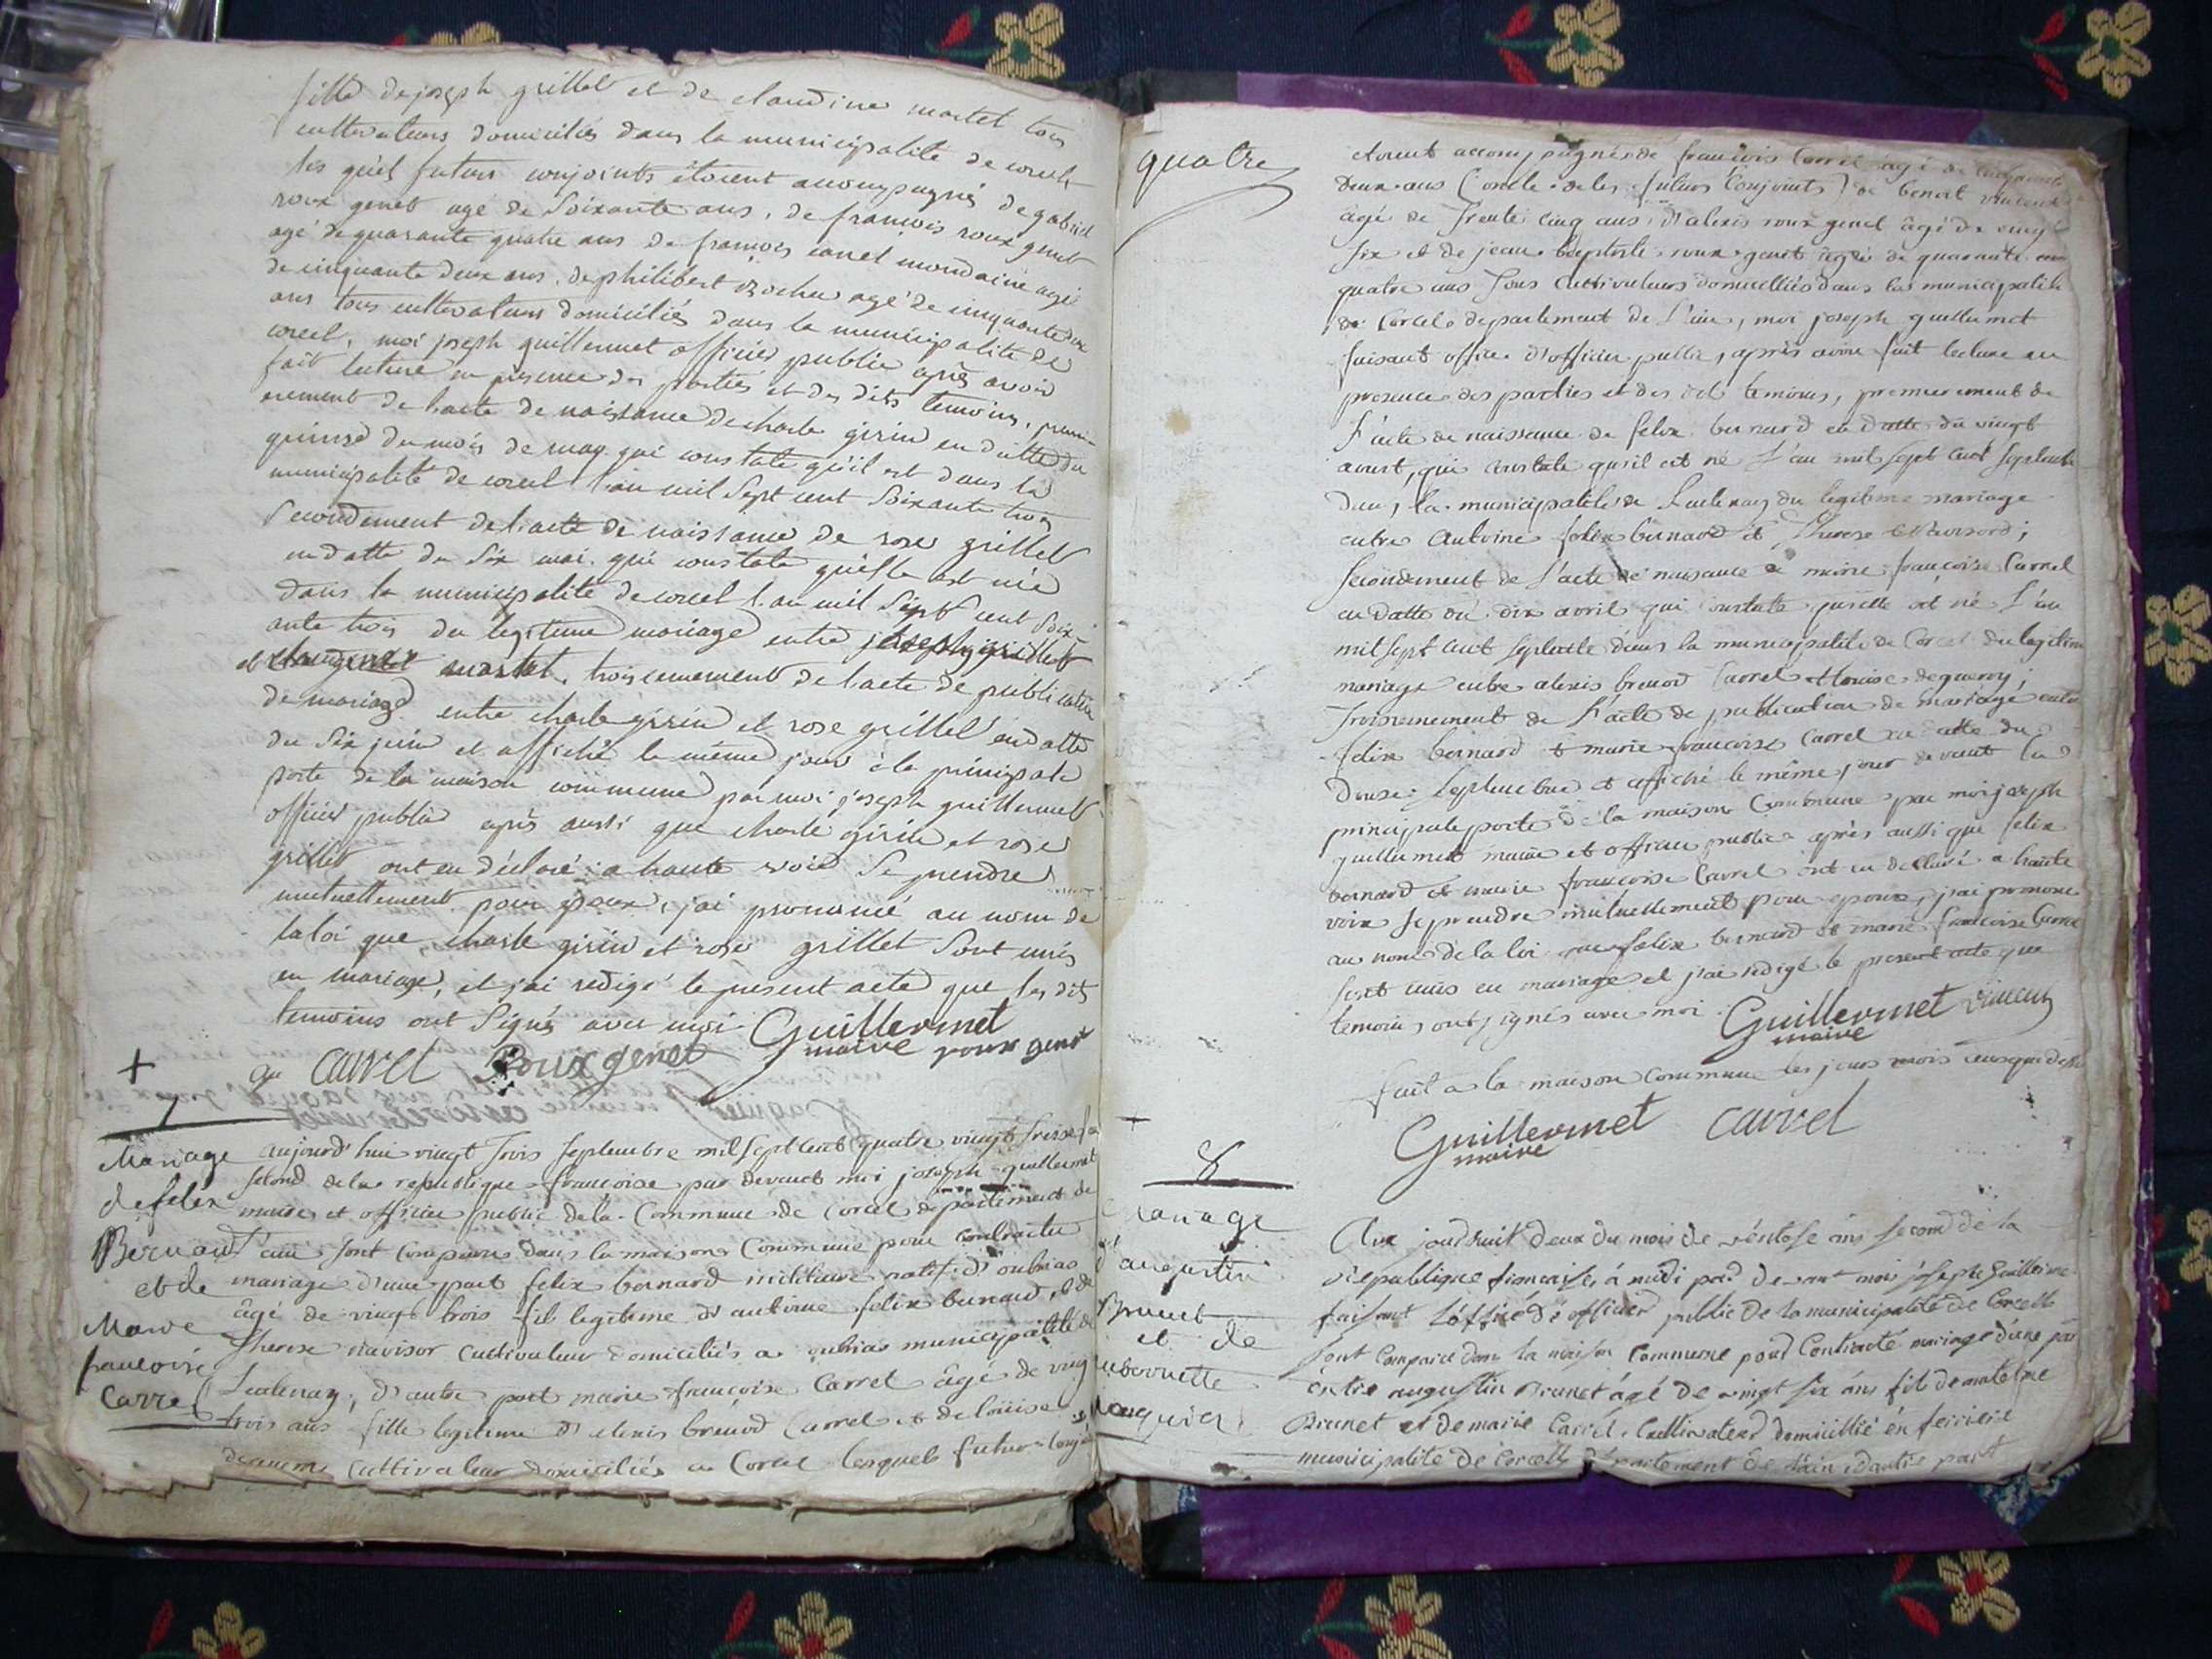 fille de joseph grillet et de claudine martel tous
cultivateurs domiciliés dans la municipalite de corcel
les quels futurs conjoints étoient accompagnés de gabriel
roux genet agé de Soixante ans, de francois roux genet
agé de quarante quatre ans de francois carrel mondaine agé
de cinquante deux ans, de philibert agé de cinquante
ans tous cultivateurs domiciliés dans la municipalite de
corcel, moi joseph guillermet officier public après avoir
fait lecture en presence des parties et des dits temoins, premi-
erement de l'acte de naissance de charle girin en datte du
quinse du mois de may qui constate qu'il est dans la
municipalite de corcel l'an mil Sept cent Soixante trois
Secondement de l'acte de naissance de rose grillet
en datte du Six mai qui constate qu'elle est née
dans la municipalite de corcel l'an mil Sept cent Soix-
ante trois du legitime mariage entre joseph grillet
et martel, troisiemement de l'acte de publication
de mariage entre charle girin et rose grillet en datte
du Six juin et affiché le même jour à la principale
porte de la maison commune par moi joseph guillermet
officier public après aussi que charle girin et rose
grillet ont eu déclaré a haute voix Se prendre
mutuellement pour epoux, j'ai prononcé au nom de
la loi que charle girin et rose grillet Sont unis
en mariage, et j'ai redigé le present acte que les dits
temoins ont Signés avec moi Guillermet
maire
carrel Roux genet roux genet
+
7
Mariage
de felix
Bernard
et de
Marie
francoise
Carrel
aujourd'hui vingt trois septembre mil sept cent quatre vingt treise
second de la republique francoise par devant moi joseph guillermet
maire et officier public de la Commune de Corcel departement de
l'ain sont comparus dans la maison Commune pour contracter
mariage d'une part felix bernard militaire natif d'oubias
âgé de vingt trois fil legitime d'antoine felix bernard et de
Therese navisor cultivateur domiciliés a oubias municipalité de
d'autre part marie francoise Carrel âgé de vingt
trois ans fille legitime d'alexis brevod Carrel et de loüise
cultivateur domiciliés a Corcel lesquels futur conj
quatre
etoient accompagnés de francois Carrel âgé de cinquante
deux ans (oncle de les futurs Conjoints) de benoit vincent
âgé de trente cinq ans, d'alexis roux genet âgé de vingt
six et de jean baptiste roux genet âgé de quarante
quatre ans tous Cultivateurs domicilliés dans la municipalité
de Corcel departement de l'ain, moi joseph guillermet
faisant office d'officier public, après avoir fait lecture en
presence des parties et des dit temoins, premierement de
l'acte de naissance de felix bernard en datte du vingt
aoust, qui constate qu'il est né l'an mil sept cent septente
dans la municipalité de du legitime mariage
entre antoine felix bernard et Therese ;
secondement de l'acte de naisance de marie francoise Carrel
en datte du dix avril qui constate qu'elle est né l'an
mil sept cent septente dans la municipalité de Corcel du legitime
mariage entre alexis brevod Carrel et louise ;
troisiemement de l'acte de publication de mariage entre
felix bernard et marie francoise Carrel en datte du
Douse septembre et affiché le même jour devant la
principale porte de la maison Commune par moi joseph
guillermet maire et officier public après aussi que felix
bernard et marie francoise Carrel ont eu declaré a haute
voix se prendre mutuellement pour epoux, j'ai prononcé
au nom de la loi que felix bernard et marie francoise Carrel
sont unis en mariage et j'ai redigé le present acte que
temoins ont signés avec moi Guillermet vincent
maire
fait a la maison Commune les jours mois
Guillermet carrel
maire
+
8
augustin
Brunet
et de
Aux jourdhuit deux du mois de véntose ans second de la
république francaise, à midi pard devant moi joséph Guillerme
faisant l'office d'officier public de la municipalité de Corcelle
sont comparu dans la maison Commune pour Contracté mariage d'une par
entre augustin Brunet âgé de vingt six ans fil de
Brunet et de marie Carrel, cultivateur domicillié en ferriere
municipalité de Corcelle département de l'ain, d'autre part